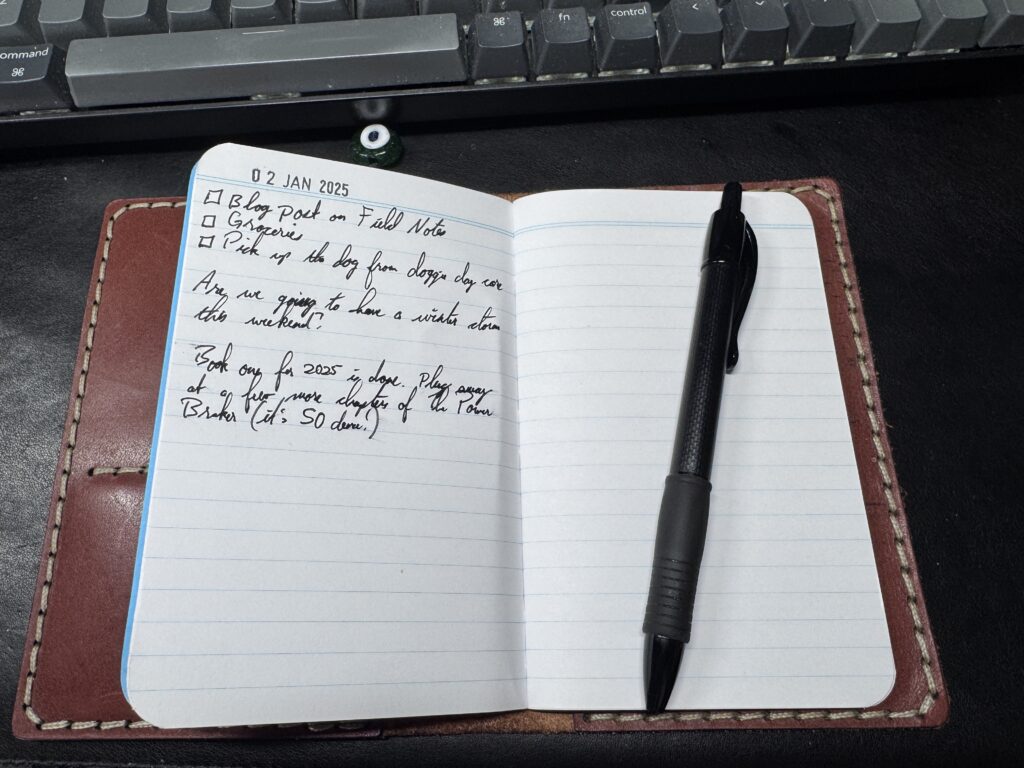 command
⌘
⌘
fn
control
<
0 2 JAN 2025
Blog Post on Field Notes
Groceries
Pick up the dog from doggie day care
Are we going to have a winter storm
this weekend?
Book one for 2025 is done. Plug away
at a few more chapters of the Power
Broker (it's SO dense!)